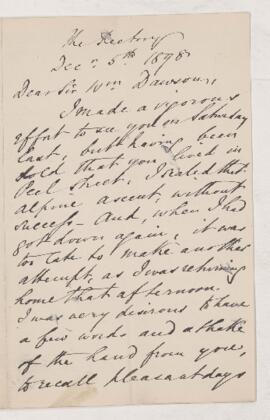 The Rectory
Decr. 5th 1898
Dear Sir Wm Dawson,
I made a vigorous
effort to see you on Saturday
last, but having been
told that you lived in
Peel Street, I scaled that
alpine ascent, without
success - And, when I had
got down again, it was
too late to make another
attempt, as I was returning
home that afternoon.
I was very desirous to have
a few words and a shake
of the hand from you,
to recall pleasant days